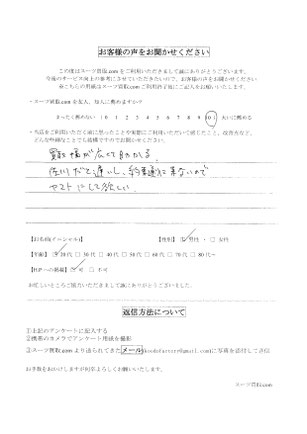 お客様の声をお聞かせください
この度はスーツ買取.comをご利用いただきまして誠にありがとうございます。
今後のサービス向上の参考にさせていただきたいので、お客様の声をお聞かせください
※こちらの用紙はスーツ買取.comご利用終了後にご記入をお願いいたします。
・スーツ買取.comを友人、知人に薦めますか？
まったく薦めない 0 1 2 3 4 5 6 7 8 9 10 大いに薦める
・当店をご利用いただく前に思ったことや実際にご利用いただいて感じたこと、改善点など、
どんな些細なことでも結構ですのでお聞かせください。
買取幅が広くて助かる。
佐川だと遅いし、約束通りに来ないので
ヤマトにして欲しい。
【お名前(イニシャル)】 【性別】 ☑男性 ・ □女性
【年齢】 ☑20代 □30代 □40代 □50代 □60代 □70代 □80代～
【HPへの掲載】 ☑可 □不可
お忙しいところご協力いただきまして誠にありがとうございました。
返信方法について
①上記のアンケートに記入する
②携帯のカメラでアンケート用紙を撮影
③スーツ買取.comより送られてきたメール に写真を添付してご返信
お手数をおかけしますが何卒よろしくお願いいたします。
スーツ買取.com